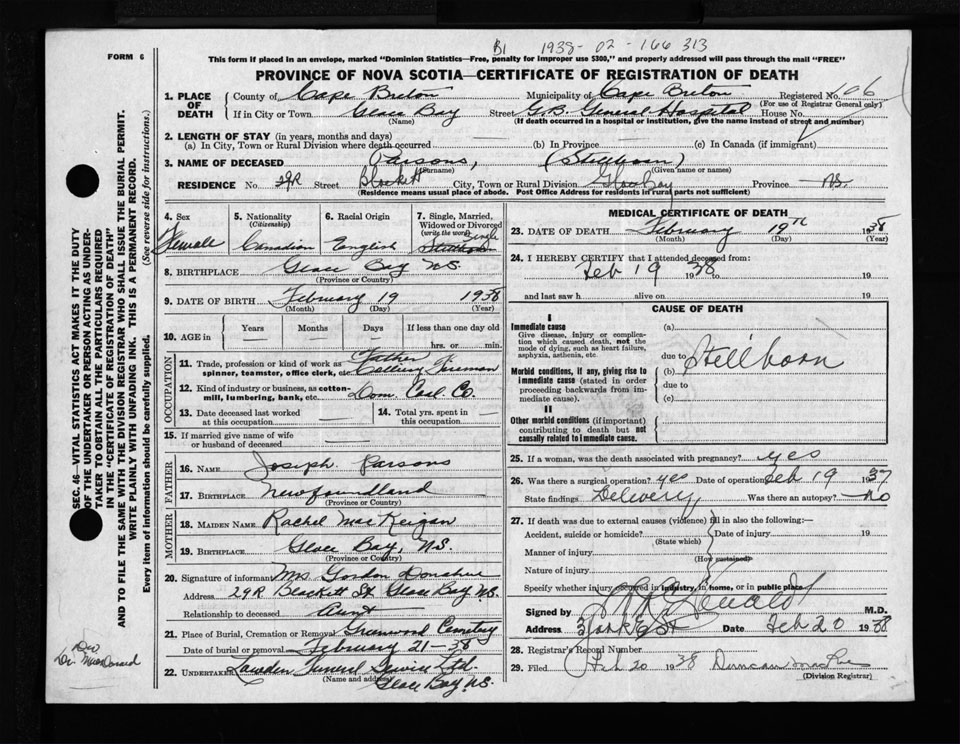 B1 1938 - 02 - 166 313
FORM 6
This form if placed in an envelope, marked "Dominion Statistics—Free, penalty for improper use $300," and properly addressed will pass through the mail "FREE"
PROVINCE OF NOVA SCOTIA—CERTIFICATE OF REGISTRATION OF DEATH
1. PLACE OF DEATH { County of Cape Breton Municipality of Cape Breton Registered No. 66
(For use of Registrar General only)
If in City or Town Glace Bay Street G.B. General Hospital House No.
(Name) (If death occurred in a hospital or institution, give the name instead of street and number)
2. LENGTH OF STAY (in years, months and days)
(a) In City, Town or Rural Division where death occurred (b) In Province (c) In Canada (if immigrant)
3. NAME OF DECEASED Parsons, (Stillborn)
(Surname) (Given name or names)
RESIDENCE No. 29R Street Blackett City, Town or Rural Division Glace Bay Province N.S.
(Residence means usual place of abode. Post Office Address for residents in rural parts not sufficient)
4. Sex 5. Nationality (Citizenship) 6. Racial Origin 7. Single, Married, Widowed or Divorced (write the word)
Female Canadian English Single Stillborn
8. BIRTHPLACE Glace Bay N.S.
(Province or Country)
9. DATE OF BIRTH February 19 1938
(Month) (Day) (Year)
10. AGE in { Years Months Days If less than one day old
hrs. or min.
OCCUPATION
11. Trade, profession or kind of work as spinner, teamster, office clerk, etc. Father Fireman
12. Kind of industry or business, as cotton-mill, lumbering, bank, etc. Dom. Coal Co.
13. Date deceased last worked at this occupation 14. Total yrs. spent in this occupation
15. If married give name of wife or husband of deceased
FATHER
16. NAME Joseph Parsons
17. BIRTHPLACE Newfoundland
MOTHER
18. MAIDEN NAME Rachel MacKeigan
19. BIRTHPLACE Glace Bay, N.S.
(Province or Country)
20. Signature of informant Mrs Gordon
Address 29R Blackett St Glace Bay N.S.
Relationship to deceased Aunt
21. Place of Burial, Cremation or Removal Greenwood Cemetery
Date of burial or removal February 21-38
22. UNDERTAKER Funeral Service Ltd.
(Name and address) Glace Bay N.S.
MEDICAL CERTIFICATE OF DEATH
23. DATE OF DEATH February 19th 1938
(Month) (Day) (Year)
24. I HEREBY CERTIFY that I attended deceased from:
Feb 19 1938 to 19
and last saw h alive on 19
CAUSE OF DEATH
I
Immediate cause
Give disease, injury or complication which caused death, not the mode of dying, such as heart failure, asphyxia, asthenia, etc
Morbid conditions, if any, giving rise to immediate cause (stated in order proceeding backwards from immediate cause).
II
Other morbid conditions (if important) contributing to death but not causally related to immediate cause.
(a)
due to
(b) Stillborn
due to
(c)
25. If a woman, was the death associated with pregnancy? yes
26. Was there a surgical operation? yes Date of operation Feb 19 1937
State findings Delivery Was there an autopsy? no
27. If death was due to external causes (violence) fill in also the following:—
Accident, suicide or homicide? Date of injury 19
(State which)
Manner of injury
(How sustained)
Nature of injury
Specify whether injury occurred in industry, in home, or in public place
Signed by M.D.
Address Date Feb 20 1938
28. Registrar's Record Number
29. Filed Feb 20 1938 Duncan
(Division Registrar)
SEC. 46—VITAL STATISTICS ACT MAKES IT THE DUTY
OF THE UNDERTAKER OR PERSON ACTING AS UNDER-
TAKER TO OBTAIN ALL THE PARTICULARS REQUIRED
IN THE "CERTIFICATE OF REGISTRATION OF DEATH"
AND TO FILE THE SAME WITH THE DIVISION REGISTRAR WHO SHALL ISSUE THE BURIAL PERMIT.
WRITE PLAINLY WITH UNFADING INK. THIS IS A PERMANENT RECORD.
Every item of information should be carefully supplied. (See reverse side for instructions.)
Dr. MacDonald